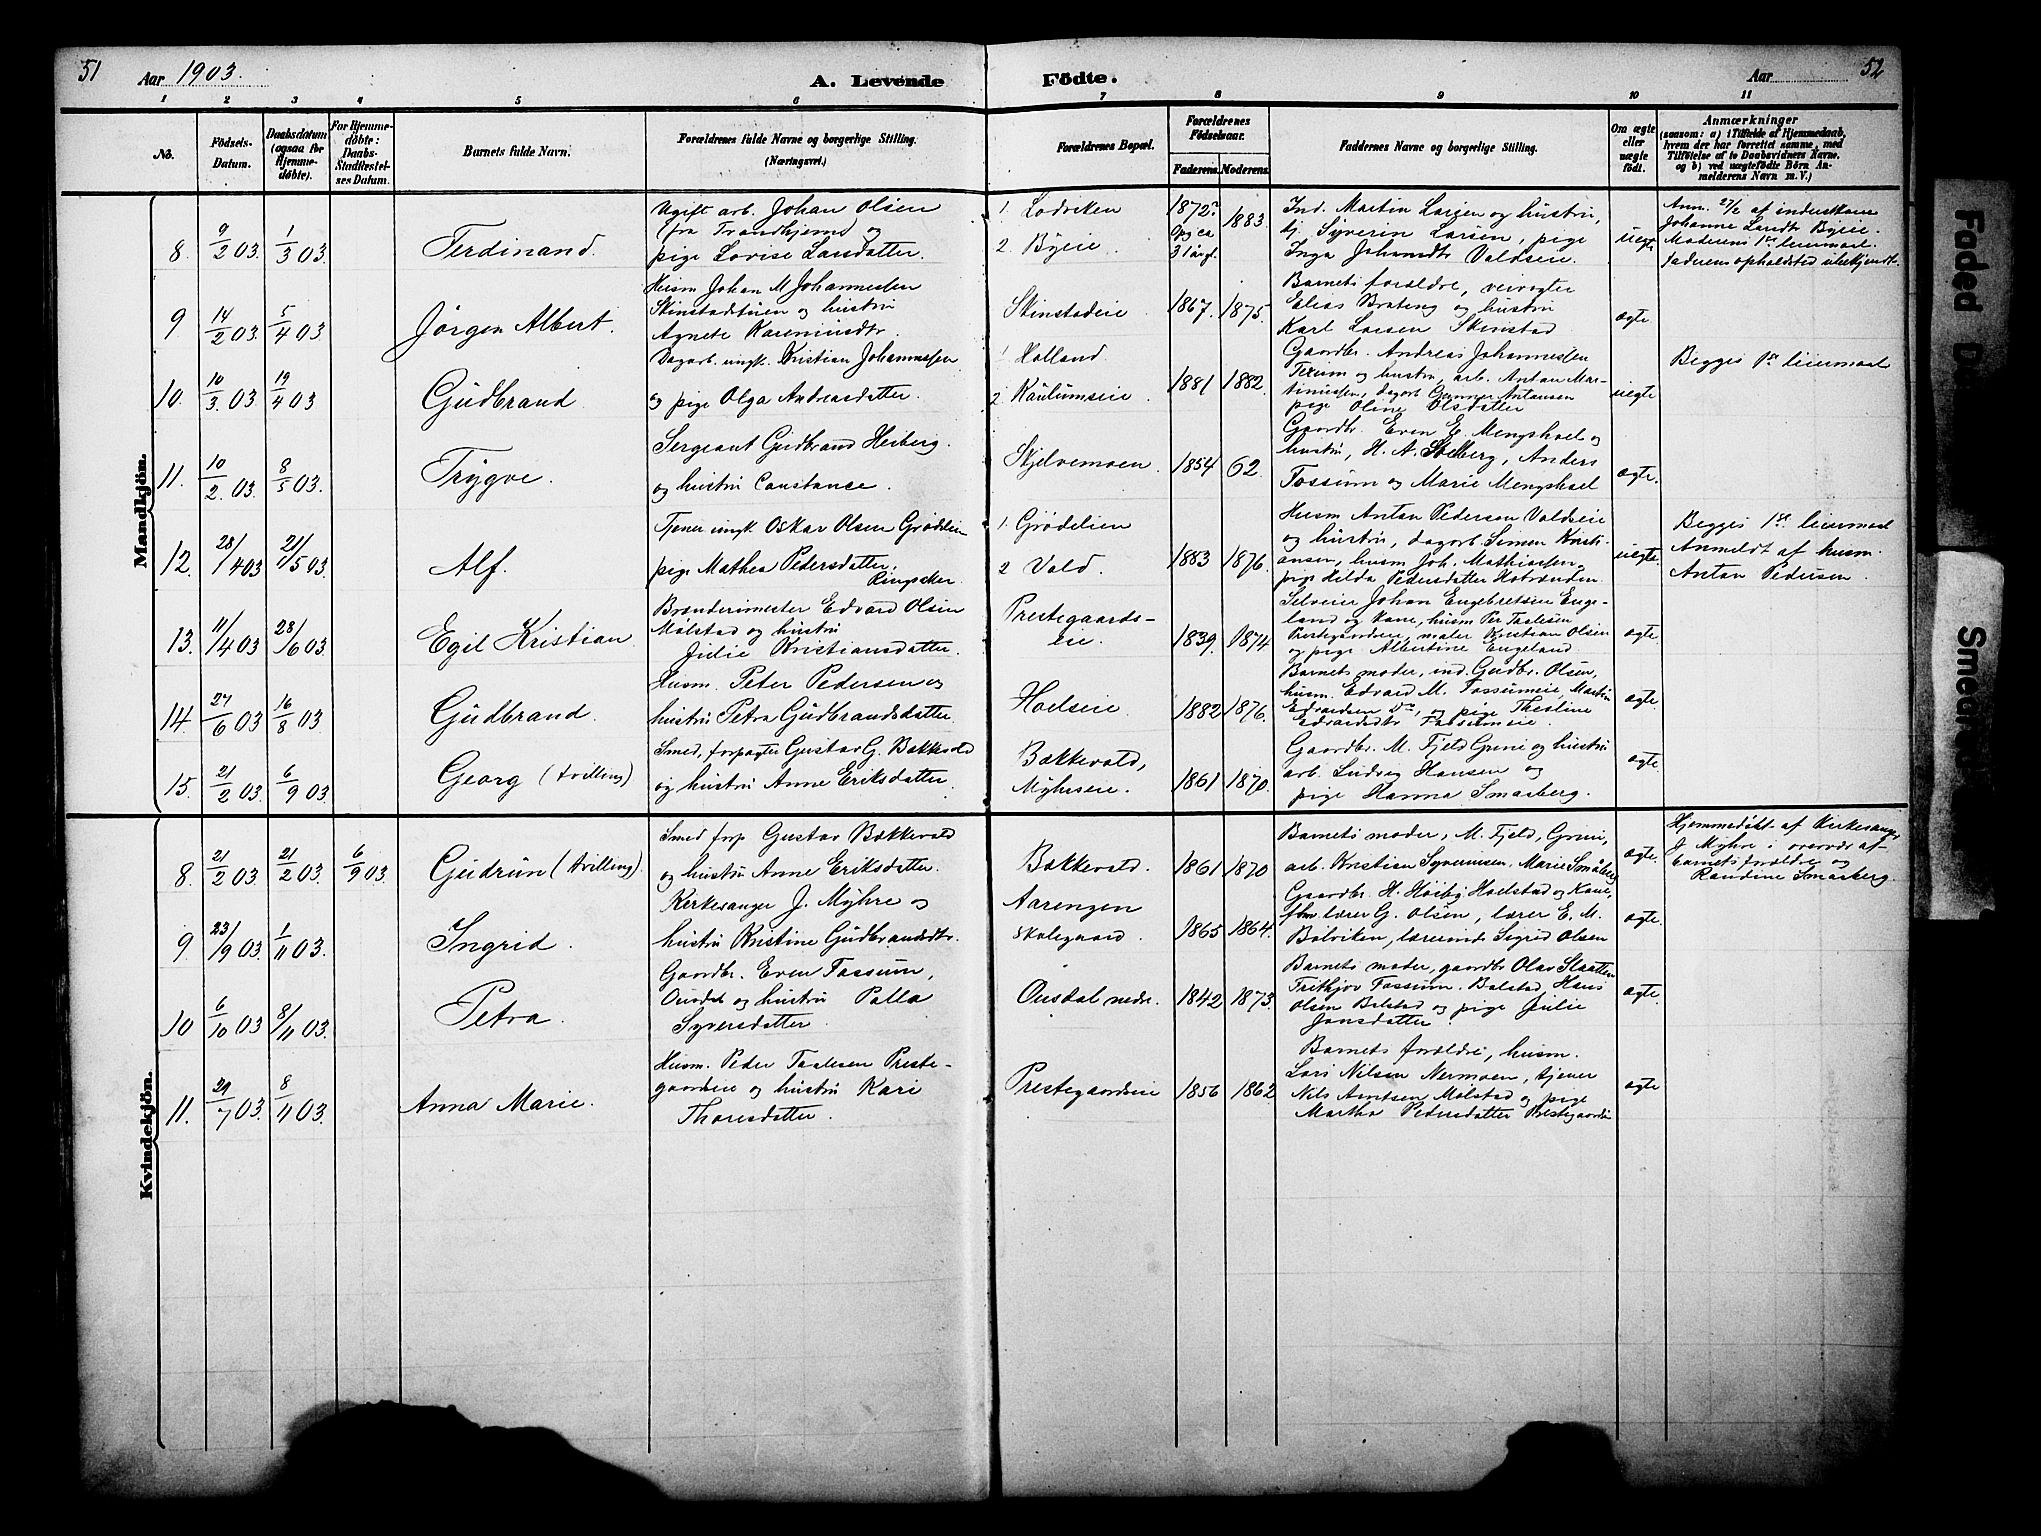 51 Aar 1903. A. Levende Födte. Aar 52
1 2 3 4 5 6 7 8 9 10 11
No. Födsels-Datum. Daabsdatum (ogsaa for Hjemme-döbte). For Hjemme-döbte: Daabs-Stadfæstel-ses Datum. Barnets fulde Navn. Forældrenes fulde Navne og borgerlige Stilling. (Næringsvei.) Forældrenes Bopæl. Forældrenes Födselsaar. Faderens. Moderens. Faddernes Navne og borgerlige Stilling. Om ægte eller uægte födt. Anmærkninger
(saasom: a) i Tilfælde af Hjemmedaab,
hvem der har forrettet samme, med
Tilföielse af to Daabsvidners Navne,
og b) ved uægtefödte Börn An-
melderens Navn m. V.)
Mandkjön.
8. 9/2 03. 1/3 03. Ferdinand.
Ugift arb. Johan Olsen
fra Trondhjem og
pige Lovise Larsdatter.
1. Lodviken
2. Byeie
1872? Opg ca 31 aar gl. 1883.
Ind. Martin Larsen og hustru,
Syverin Larsen, pige
Inga Johansdtr Voldseie.
uegte
Anm. 27/2 af inderstkone
Johanne Larsdt Byeie.
Moderens 1ste leiermaal.
Faderens opholdsted ubekjendt.
9 14/2 03. 5/4 03 Jörgen Albert.
Husm Johan M Johannessen
Skinstadtuen og hustru
Agnete Karenusdtr.
Skinstadeie 1867. 1875.
Barnets forældre, veivogter
Elias Bråteng og hustru
Karl Larsen Skinstad
ægte.
10. 10/3. 03 19/4 03 Gudbrand.
Dagarb. ungk. Kristian Johannessen
og pige Olga Andreasdatter.
1 Holland
2. Kaulumseie. 1881 1882.
Gaardbr. Andreas Johannessen
og hustru, arb. Anton Mar-
tinussen, dagarb Gunnar Antonsen
pige Oline Olsdatter
uegte
Begges 1ste leiermaal
11. 10/2. 03. 8/5 03. Trygve.
Sergeant Gudbrand Heiberg.
og hustru Constance.
Skjelvemoen. 1854 62.
Gaardbr. Even E. Mengshoel og
hustru, H. A. Stolberg, Anders
Fossum og Marie Mengshoel
ægte.
12. 28/4 03 21/5 03. Alf.
Tjener ungk. Oskar Olsen Grödelien
pige Mathea Pedersdatter,
Ringsaker.
1. Grödelien
2 Vold. 1883 1876.
Husm Anton Pederson Voldseie
og hustru, dagarb. Simen Kristi-
ansen, husm Joh. Mathisen,
pige Hilda Pedersdatter
uegte.
Begges 1ste leiermaal
Anmeldt af husm.
Anton Pedersen.
13. 11/4 03 28/6 03. Egil Kristian
Brænderimester Edvard Olsen
Mölstad og hustru
Julie Kristiansdatter.
Prestegaards-
eie. 1839. 1874
Selveier Johan Engebretsen Enge-
land og kone, husm Per Taalesen
Prestegaardseie, maler Kristian Olsen
og pige Albertine Engeland
ægte
14. 27/6 03 16/8 03 Gudbrand.
Husm. Peter Pedersen og
hustru Petra Gudbrandsdatter.
Hoelseie. 1882 1876.
Barnets moder, ind. Gudbr. Olsen,
husm. Edvard M. Fossumeie, Martin
Edvardsen, og pige Thesline
Edvardsdtr Fossumeie.
ægte.
15. 21/2 03. 6/9 03 Georg (tvilling)
Smed, forpagter Gustav G. Bækkevold
og hustru Anne Eriksdatter.
Bækkevold,
Myhreeie. 1861 1870.
Gaardbr. M. Fjeld Gruni og hustru
arb. Ludvig Hansen og
pige Hanna Småberg.
ægte.
Kvindekjön.
8. 21/2 03. 21/2 03. 6/9 03. Gudrun (tvilling).
Smed forp Gustav Bækkevold
og hustru Anne Eriksdatter.
Bækkevold. 1861 1870
Barnets moder, M. Fjeld, Gruni,
arb. Kristian Syversen, Marie Småberg
ægte.
Hjemmedöbt af Kirkesanger
J. Myhre i overvær af
barnets forældre og
Randine Småberg.
9. 23/9 03. 1/11 03. Ingrid.
Kirkesanger J. Myhre og
hustru Kristine Gudbrandsdtr.
Aarengen
Skolegaard. 1865 1864.
Gaardbr. H. Höiby Hoelstad og Kone,
lærer G. Olsen, lærer E. M.
Bölviken, lærerinde Sigrid Olsen
ægte.
10 6/10 03 8/11 03. Petra.
Gaardbr. Even Fossum,
Ousdal og hustru Palla
Syversdatter.
Ousdal nedre. 1842 1873.
Barnets moder, gaardbr Olav Slaatten
Fritkjov Fossum. Bolstad, Hans
Olsen Bolstad og pige Julie
Jonsdatter.
ægte.
11. 29/7 03. 8/11 03. Anna Marie.
Husm. Peder Taalesen Preste-
gaardseie og hustru Kari
Thoresdatter.
Prestegaardseie 1856 1862
Barnets forældre, husm.
Lars Nilsen Nermoen, tjener
Nils Arntsen Mölstad og pige
Martha Pedersdatter Prestegaardseie
ægte
Faded
Smeared